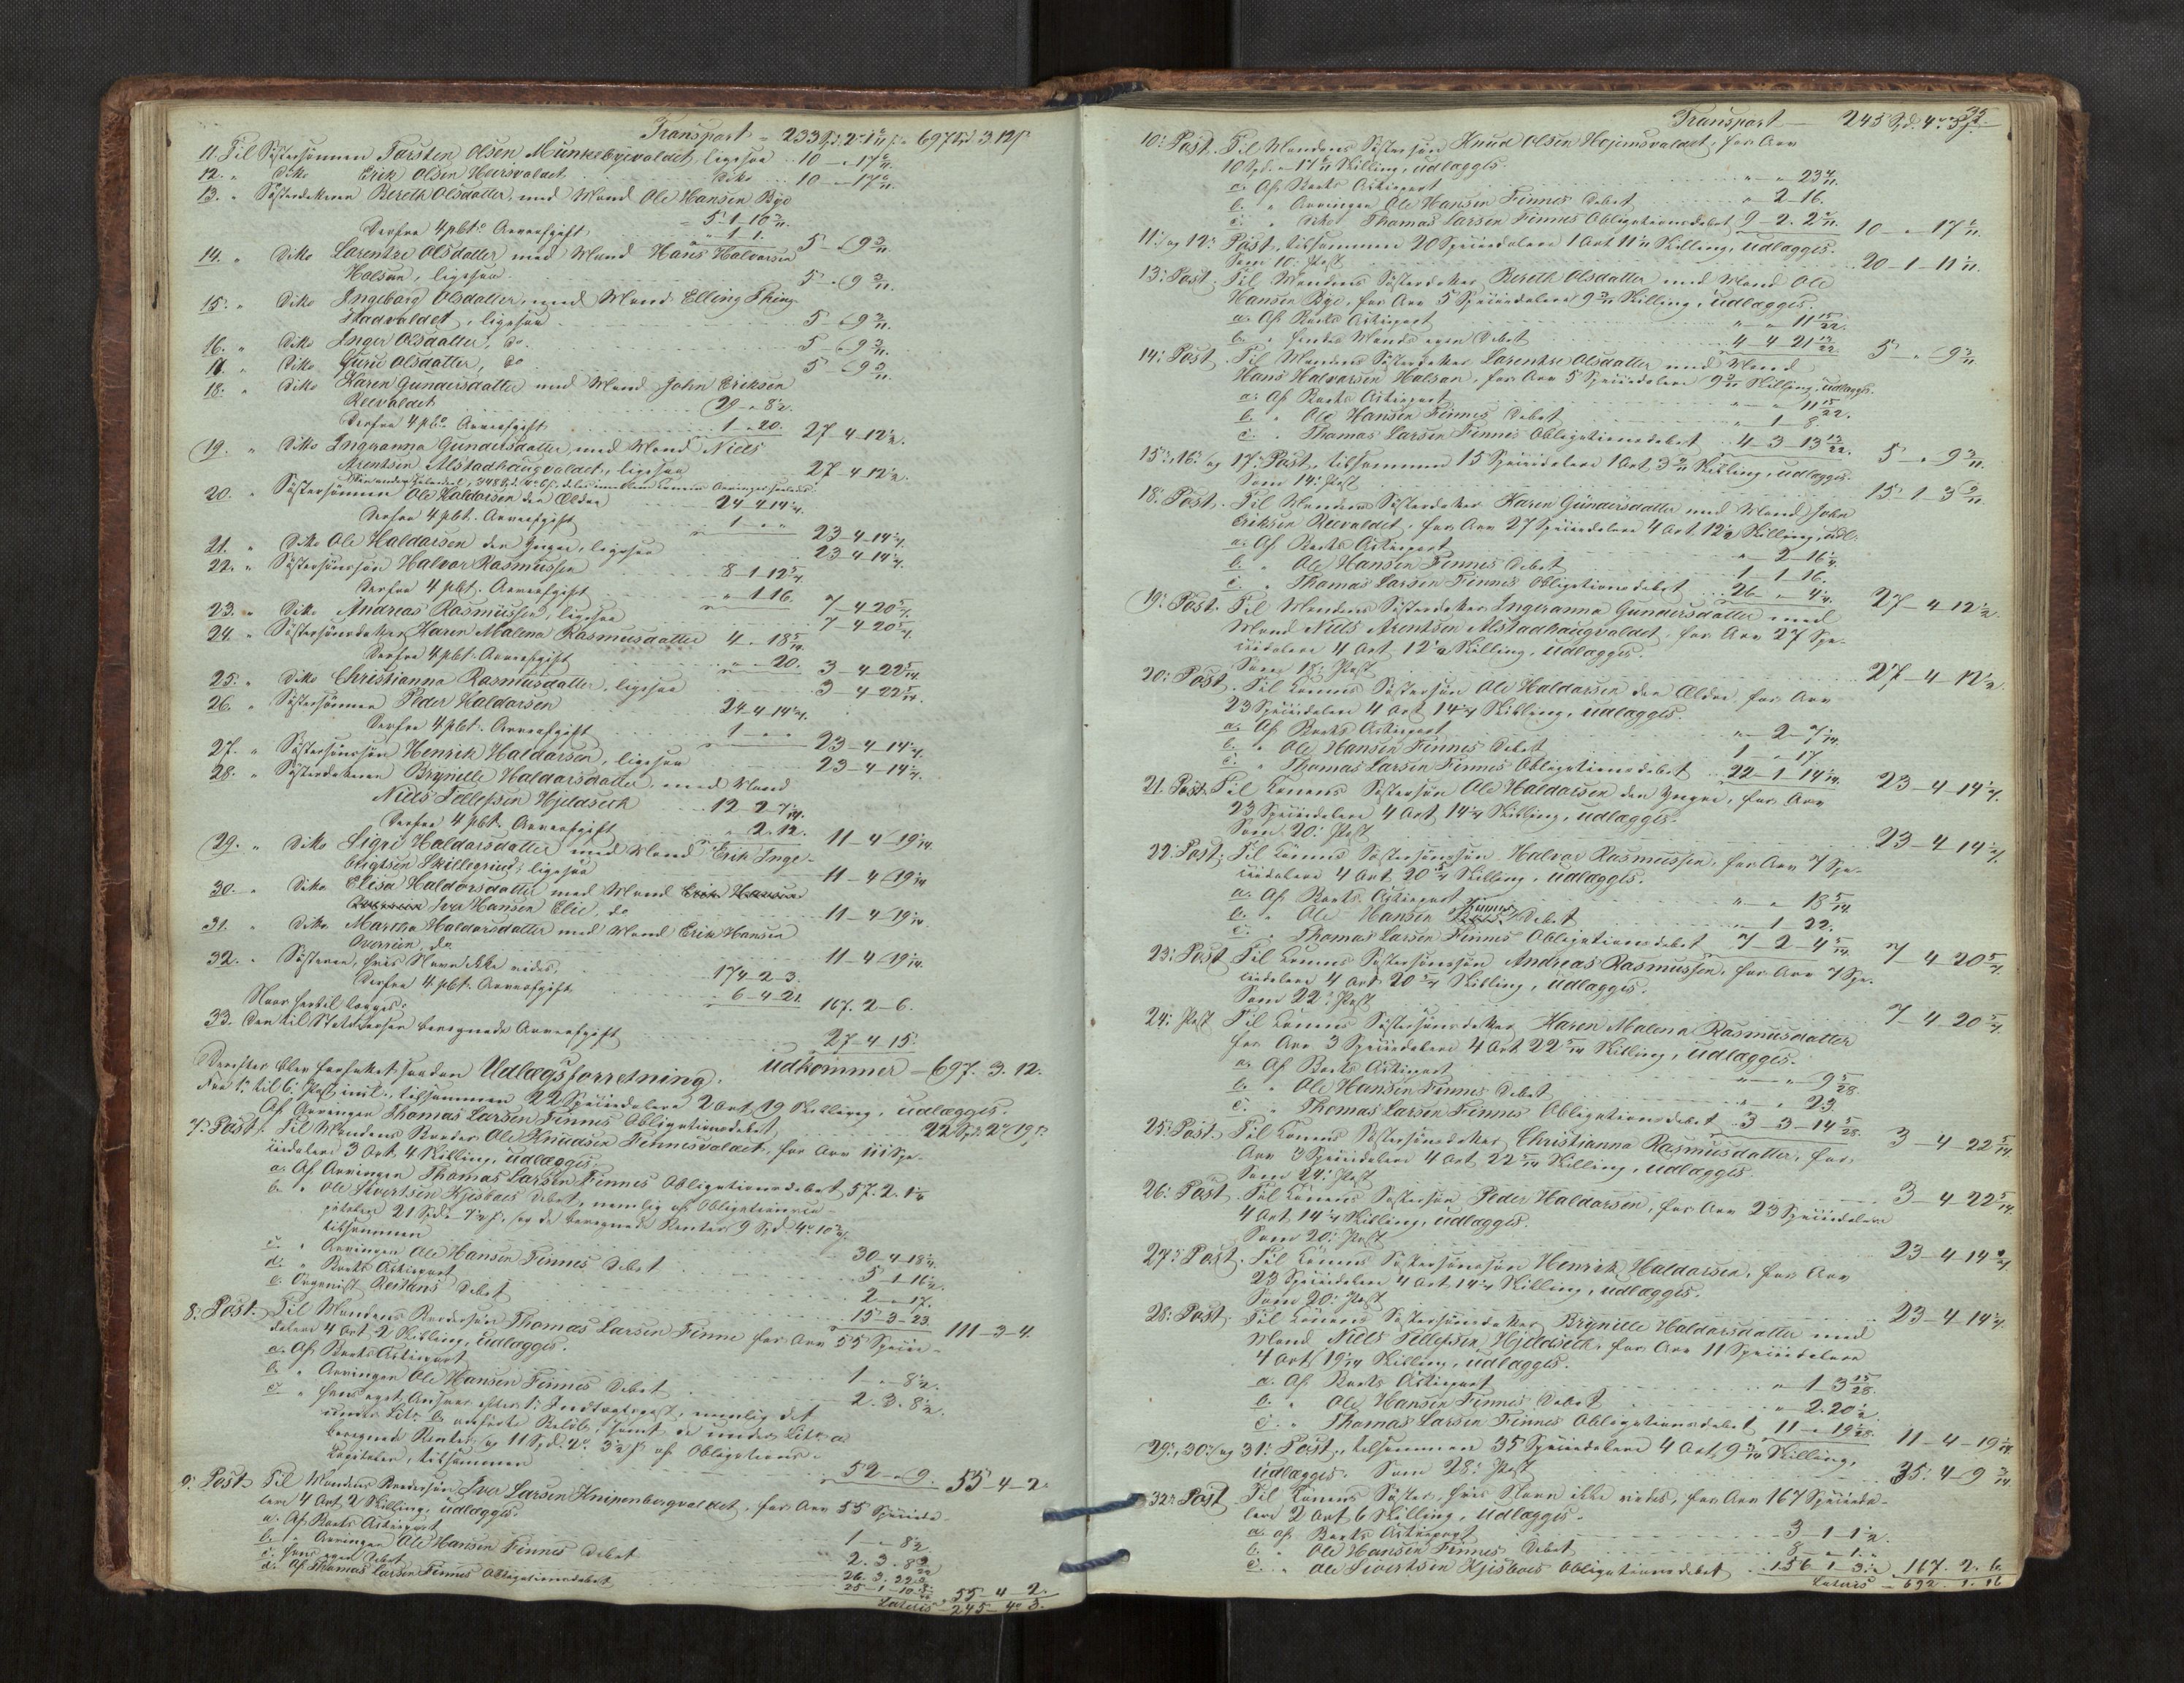 Transport - 233 Spd. 2 - 1 6/11 s. - 697 Spd. 3. 12 s.
11. Til Søstersønnen Torsten Olsen Munkebyevaldet, ligesaa 10 - " - 17 6/11.
12. " Dito Erik Olsen Hoesvaldet Dito 10 - " - 17 6/11.
13. " Søsterdatteren Bereth Olsdatter, med Mand Ole Hansen Bye
5 - 1 - 10 3/11.
Derfra 4 pCt. Arveafgift " - 1 - 1. 5 - " - 9 3/11.
14. " Dito Lorentze Olsdatter med Mand Hans Halvorsen
Halsan, ligesaa 5 - " - 9 3/11.
15. " Dito Ingeborg Olsdatter, med Mand Elling Ring-
stadvaldet, ligesaa 5 - " - 9 3/11.
16. " Dito Inger Olsdatter, do. 5 - " - 9 3/11.
17. " Dito Guru Olsdatter, do 5 - " - 9 3/11.
18. " Dito Karen Gundersdatter med Mand John Eriksen
Reevaldet 29 - " - 8 1/2.
Derfra 4 pCt. Arveafgift 1 - " - 20. 27 - 4 - 12 1/2.
19. " Dito Ingeranna Gundersdatter, med Mand Niels
Arentsen Alstadhaugvaldet, ligesaa 27 - 4 - 12 1/2.
20. " Søstersønnen Ole Haldorsen den Ældre 24 - 4 - 14 1/7.
Derfra 4 pCt. Arveafgift 1 - " - " 23 - 4 - 14 1/7.
21. " Dito Ole Haldorsen den Yngre, ligesaa 23 - 4 - 14 1/7.
22. " Søstersønssøn Halvor Rasmussen 8 - 1 - 12 5/7.
Derfra 4 pCt. Arveafgift " - 1 - 16. 7 - 4 - 20 5/7.
23. " Dito Andreas Rasmussen, ligesaa 7 - 4 - 20 5/7.
24. " Søstersønsdatter Karen Malena Rasmusdatter 4 - " - 18 5/14.
Derfra 4 pCt. Arveafgift " - " - 20. 3 - 4 - 22 5/14.
25. " Dito Christianna Rasmusdatter, ligesaa 3 - 4 - 22 5/14.
26. " Søstersønnen Peder Haldorsen 24 - 4 - 14 1/7.
Derfra 4 pCt. Arveafgift 1 - " - " 23 - 4 - 14 1/7.
27. " Søstersønssøn Henrik Haldorsen, ligesaa 23 - 4 - 14 1/7.
28. " Søsterdatteren Brynille Haldorsdatter, med Mand
Niels Tellefsen Hjeldseth 12 - 2 - 7 1/14.
Derfra 4 pCt. Arveafgift " - 2 - 12. 11 - 4 - 19 1/14.
29. " Dito Sigri Haldorsdatter med Mand Erik Inge-
brigtsen Skillegrind, ligesaa 11 - 4 - 19 1/14
30. " Dito Elisa Haldorsdatter med Mand Erik Hansen
Iver Hansen Elie, do 11 - 4 - 19 1/14.
31. " Dito Martha Haldorsdatter med Mand Erik Hansen
Overeien, do 11 - 4 - 19 1/14.
32. " Søsteren, hvis Navn ikke vides, 174 - 2 - 3.
Derfra 4 pCt. Arveafgift 6 - 4 - 21. 167. 2 - 6.
Naar hertil lægges:
33. Den til Statskassen beregnede Arveafgift 27 - 4 - 15.
Udkommer - 697. 3. 12.
Derefter blev foretaget saadan Udlægsforretning:
1ste til 6te Post incl., tilsammen 22 Speciedalere 2 Ort 19 Skilling, udlægges.
Af Arvingen Thomas Larsen Finnes Obligationsdebet 22 Spd. 2 - 19 s.
7: Post. Til Mandens Broder Ole Knudsen Finnesvaldet, for Arv 111 Spe-
ciedalere 3 Ort 4 Skilling, udlægges.
a. Af Arvingen Thomas Larsen Finnes Obligationsdebet 57. 2. 1 1/2
b. " Ole Sivertsen Kjesboes Debet, nemlig af Obligationen
21 Spd. - 7 3/4 s. og de beregnede Renter 9 Spd. 4 - 10 3/4 s.
tilsammen 30 - 4 - 18 1/2.
c. " Arvingen Ole Hansen Finnes Debet 5 - 1 - 16 1/2.
d. " Boets Activer 2 - " - 17.
e. Organist Reitans Debet 15 - 3 - 23. 111 - 3 - 4.
8: Post. Til Mandens Brodersøn Thomas Larsen Finne for Arv 55 Specie-
dalere 4 Ort 2 Skilling, udlægges.
a. Af Boets Activer 1 - " - 8 1/2.
b. " Arvingen Ole Hansen Finnes Debet 2. 3. 8 1/2.
c. " hans eget Ansvar efter 1: Indtægtspost, nemlig det
under Litr. b anførte Beløb, samt de under Litr. a
beregnede Renter og 11 Spd. 2 - 3 1/2 s. af Obligations-
Capitalen, tilsammen 52 - " - 9. 55 - 4 - 2.
9: Post. Til Mandens Brodersøn Iver Larsen Knipenbergvaldet, for Arv 55 Specieda-
lere 4 Ort 2 Skilling, udlægges.
a. Af Boets Activer 1 - " - 8 1/2
b. " Arvingen Ole Hansen Finnes Debet 2. 3. 8
c. hans egen Debet 26. 3. 22
d. Af Thomas Larsen Finnes Obligationsdebet 25 - 1 - 10 55 - 4 - 2.
Lateris - 245 - 4 - 3.
35.
Transport - 245 Spd. 4 - 3 s.
10: Post. Til Mandens Søstersøn Knud Olsen Hojemsvaldet, for Arv
10 Spd. - " - 17 6/11 Skilling, udlægges.
a. Af Boets Activer " - " - 23
b. " Arvingen Ole Hansen Finnes Debet " - 2 - 16.
c. " Dito Thomas Larsen Finnes Obligationsdebet 9 - 2. 2 10 - " - 17 6/11.
11: og 12: Post, tilsammen 20 Speciedalere 1 Ort 11 1/11 Skilling, udlægges.
Som 10: Post 20 - 1 - 11 1/11.
13: Post. Til Mandens Søsterdatter Bereth Olsdatter med Mand Ole
Hansen Bye, for Arv 5 Speciedalere 9 3/11 Skilling, udlægges.
a. Af Boets Activer " - " - 11 15/22.
b. " hendes Mands egen Debet 4 - 4 - 21 13/22. 5 - " - 9 3/11
14: Post. Til Mandens Søsterdatter Lorentze Olsdatter med Mand
Hans Halvorsen Halsan, for Arv 5 Speciedalere 9 3/11 Skilling, udlægges.
a. Af Boets Activer " - " - 11 15/22.
b. " Ole Hansen Finnes Debet " - 1 - 8.
c. " Thomas Larsen Finnes Obligationsdebet 4 - 3 - 13 13/22. 5 - " - 9 3/11.
15: 16: og 17: Post, tilsammen 15 Speciedalere 1 Ort 3 9/11 Skilling, udlægges.
Som 14: Post 15 - 1 - 3 9/11.
18: Post. Til Mandens Søsterdatter Karen Gundersdatter med Mand John
Eriksen Reevaldet, for Arv 27 Speciedalere 4 Ort 12 1/2 Skilling, udl.
a. Af Boets Activer " - 2 - 16 1/4.
b. " Ole Hansen Finnes Debet 1 - 1 - 16.
c. " Thomas Larsen Finnes Obligationsdebet 26 - " - 4 1/4. 27 - 4 - 12 1/2.
19: Post. Til Mandens Søsterdatter Ingeranna Gundersdatter med
Mand Niels Arentsen Alstadhaugvaldet, for Arv 27 Spe-
ciedalere 4 Ort 12 1/2 Skilling, udlægges.
Som 18: Post 27 - 4 - 12 1/2.
20: Post. Til Konens Søstersøn Ole Haldorsen den Ældre, for Arv
23 Speciedalere 4 Ort 14 1/7 Skilling, udlægges.
a. Af Boets Activer " - 2 - 7 1/14.
b. " Ole Hansen Finnes Debet 1 - " - 17
c. " Thomas Larsen Finnes Obligationsdebet 22 - 1 - 14 1/14. 23 - 4 - 14 1/7.
21. Post. Til Konens Søstersøn Ole Haldorsen den Yngre, for Arv
23 Speciedalere 4 Ort 14 1/7 Skilling, udlægges.
Som 20: Post 23 - 4 - 14 1/7.
22: Post. Til Konens Søstersønssøn Halvor Rasmussen, for Arv 7 Spe-
ciedalere 4 Ort 20 5/7 Skilling, udlægges.
a. Af Boets Activer " - " - 18 5/14
b. " Ole Hansen Finnes Debet " - 1 - 22.
c. " Thomas Larsen Finnes Obligationsdebet 7 - 2 - 4 5/14. 7 - 4 - 20 5/7.
23: Post. Til Konens Søstersønssøn Andreas Rasmussen, for Arv 7 Spe-
ciedalere 4 Ort 20 5/7 Skilling, udlægges.
Som 22: Post 7 - 4 - 20 5/7.
24: Post. Til Konens Søstersønsdatter Karen Malena Rasmusdatter
for Arv 3 Speciedalere 4 Ort 22 5/14 Skilling, udlægges.
a. Af Boets Activer " - " - 9 5/28.
b. " Ole Hansen Finnes Debet " - " - 23.
c. " Thomas Larsen Finnes Obligationsdebet 3 - 3 - 14 5/28. 3 - 4 - 22 5/14.
25: Post. Til Konens Søstersønsdatter Christianna Rasmusdatter, for
Arv 3 Speciedalere 4 Ort 22 5/14 Skilling, udlægges.
Som 24: Post 3 - 4 - 22 5/14.
26: Post. Til Konens Søstersøn Peder Haldorsen, for Arv 23 Speciedalere
4 Ort 14 1/7 Skilling, udlægges.
Som 20: Post 23 - 4 - 14 1/7
27: Post. Til Konens Søstersønssøn Henrik Haldorsen, for Arv
23 Speciedalere 4 Ort 14 1/7 Skilling, udlægges.
Som 20: Post 23 - 4 - 14 1/7.
28: Post. Til Konens Søsterdatter Brynille Haldorsdatter med
Mand Niels Tellefsen Hjeldseth, for Arv 11 Speciedalere
4 Ort 19 1/14 Skilling, udlægges.
a. Af Boets Activer " - 1 - 3 15/28.
b. " Ole Hansen Finnes Debet " - 2. 20 1/2.
c. " Thomas Larsen Finnes Obligationsdebet 11 - " - 19 1/28. 11 - 4 - 19 1/14
29:, 30: og 31: Post, tilsammen 35 Speciedalere 4 Ort 9 3/14 Skilling,
udlægges. Som 28: Post 35: 4 - 9 3/14.
32: Post. Til Konens Søster, hvis Navn ikke vides, for Arv 167 Specieda-
lere 2 Ort 6 Skilling, udlægges.
a. af Boets Activer 3 - 1 - 1 1/2.
b. " Ole Hansen Finnes Debet 8 - " - 1.
c. " Ole Sivertsen Kjesboes Obligationsdebet 156 - 1 - 3 1/2 167. 2. 6.
Lateris - 692. 1. 16